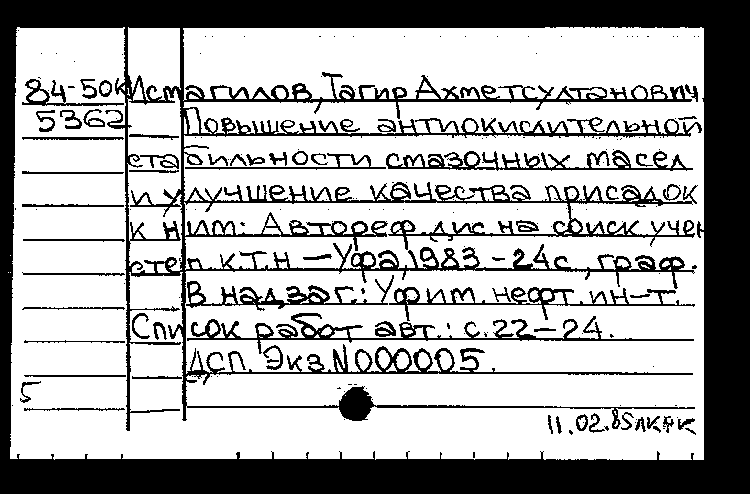 84-50к Исмагилов, Тагир Ахметсултанович.
5362 Повышение антиокислительной
стабильности смазочных масел
и улучшение качества присадок
к ним: Автореф. дис. на соиск. учен
степ. к.т.н — Уфа, 1983 - 24с, граф.
В надзаг.: Уфим. нефт. ин-т.
Список работ авт.: с. 22-24.
ДСП. Экз. N000005.
5
11.02.85